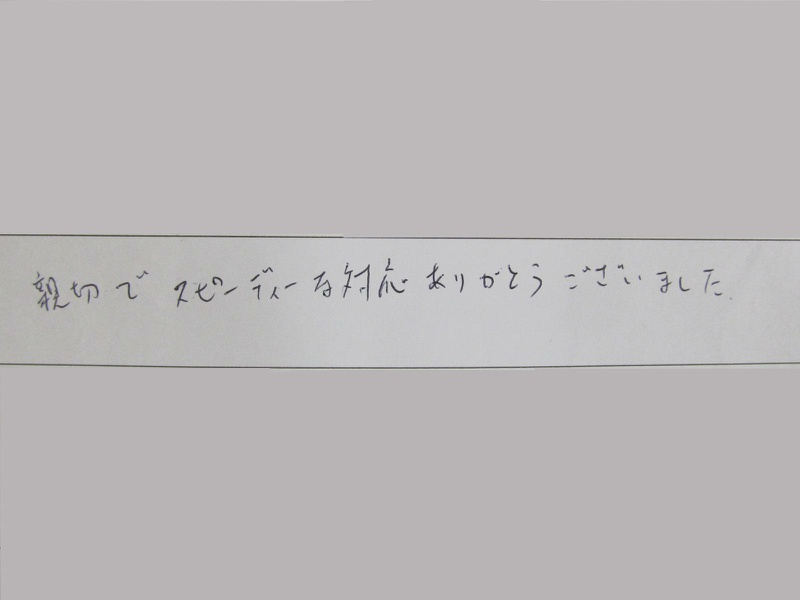 親切で スピーディーな対応 ありがとう ございました.